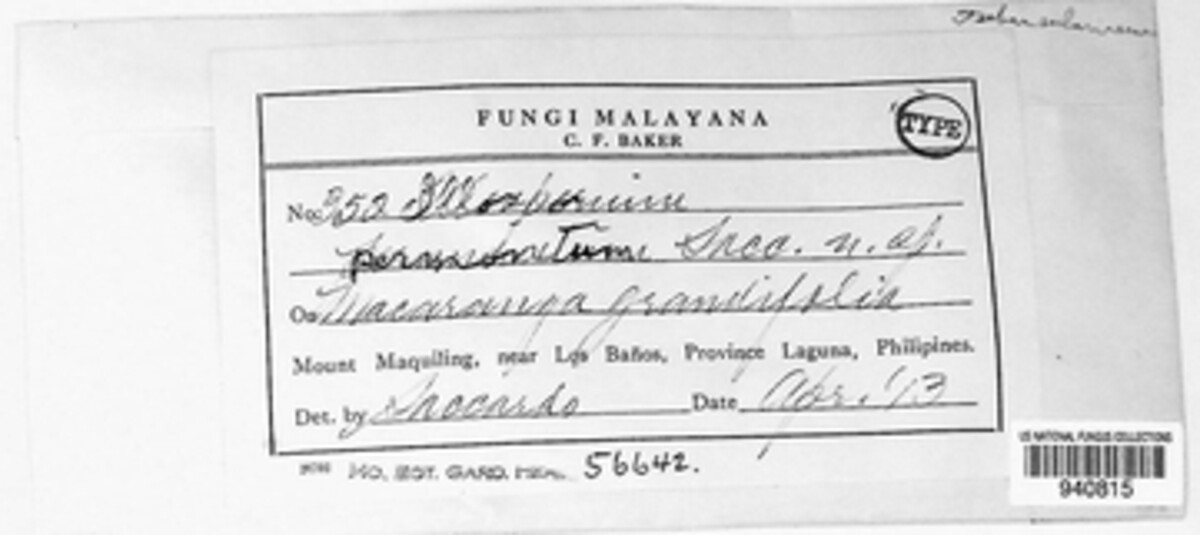 FUNGI MALAYANA
C. F. BAKER
TYPE
No. 952 Illosporium
Sacc. n. sp.
On Macaranga grandifolia
Mount Maquiling, near Los Baños, Province Laguna, Philipines.
Det. by Saccardo Date Apr. '13
MO. BOT. GARD. HERB. 56642.
US NATIONAL FUNGUS COLLECTIONS
940815